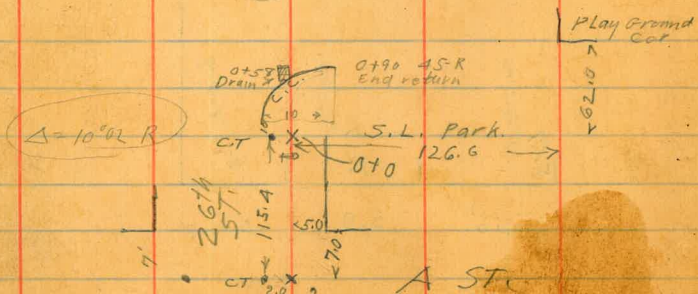 Play Ground
Cor
62.0
0+58
Drain
0+90 45-R
End return
C.
C.
10
10
Δ=10°02 R
C.T
S.L. Park.
126.6
0+0
26th
ST.
115.4
<5.0
<7.0
7'
CT
A ST.